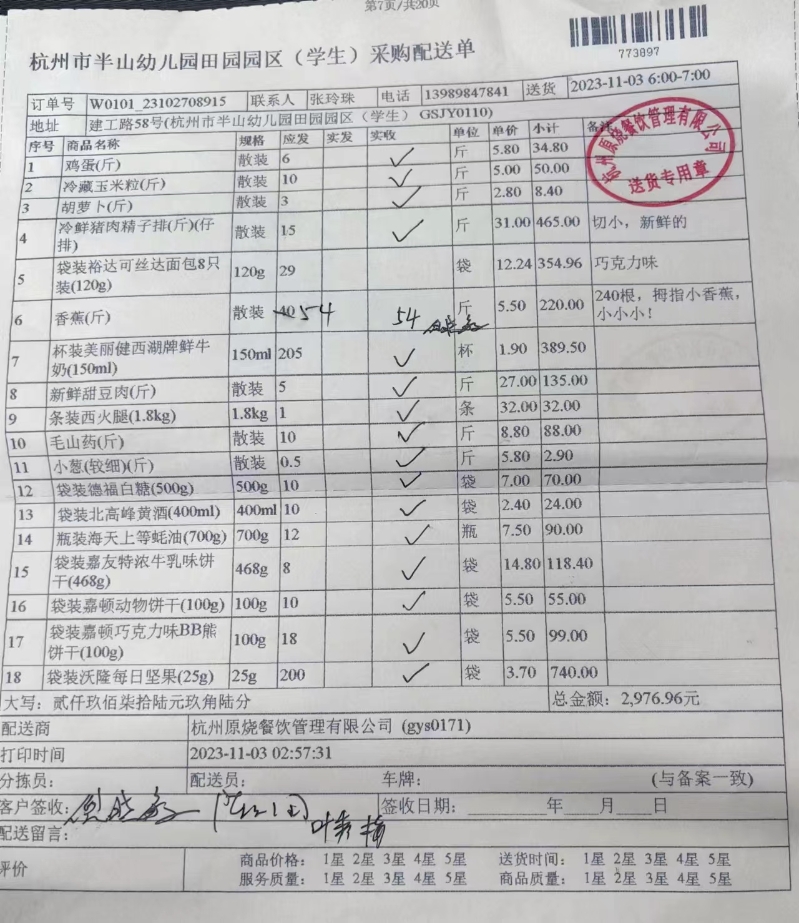 第7页/共20页
杭州市半山幼儿园田园园区（学生）采购配送单
773897
订单号 W0101_23102708915 联系人 张玲珠 电话 13989847841 送货 2023-11-03 6:00-7:00
地址 建工路58号(杭州市半山幼儿园田园园区（学生）GSJY0110)
序号 商品名称 规格 应发 实发 实收 单位 单价 小计 备注
杭州原烧餐饮管理有限公司
送货专用章
1 鸡蛋(斤) 散装 6 ✓ 斤 5.80 34.80
2 冷藏玉米粒(斤) 散装 10 ✓ 斤 5.00 50.00
3 胡萝卜(斤) 散装 3 ✓ 斤 2.80 8.40
4 冷鲜猪肉精子排(斤)(仔排) 散装 15 ✓ 斤 31.00 465.00 切小，新鲜的
5 袋装裕达可丝达面包8只装(120g) 120g 29 袋 12.24 354.96 巧克力味
6 香蕉(斤) 散装 40 54 54 斤 5.50 220.00 240根，拇指小香蕉，小小小！
7 杯装美丽健西湖牌鲜牛奶(150ml) 150ml 205 ✓ 杯 1.90 389.50
8 新鲜甜豆肉(斤) 散装 5 ✓ 斤 27.00 135.00
9 条装西火腿(1.8kg) 1.8kg 1 ✓ 条 32.00 32.00
10 毛山药(斤) 散装 10 ✓ 斤 8.80 88.00
11 小葱(较细)(斤) 散装 0.5 ✓ 斤 5.80 2.90
12 袋装德福白糖(500g) 500g 10 ✓ 袋 7.00 70.00
13 袋装北高峰黄酒(400ml) 400ml 10 ✓ 袋 2.40 24.00
14 瓶装海天上等蚝油(700g) 700g 12 ✓ 瓶 7.50 90.00
15 袋装嘉友特浓牛乳味饼干(468g) 468g 8 ✓ 袋 14.80 118.40
16 袋装嘉顿动物饼干(100g) 100g 10 ✓ 袋 5.50 55.00
17 袋装嘉顿巧克力味BB熊饼干(100g) 100g 18 ✓ 袋 5.50 99.00
18 袋装沃隆每日坚果(25g) 25g 200 ✓ 袋 3.70 740.00
大写：贰仟玖佰柒拾陆元玖角陆分 总金额：2,976.96元
配送商 杭州原烧餐饮管理有限公司 (gys0171)
打印时间 2023-11-03 02:57:31
分拣员： 配送员： 车牌： (与备案一致)
客户签收： 签收日期： ____年__月__日
配送留言：
评价 商品价格： 1星 2星 3星 4星 5星 送货时间： 1星 2星 3星 4星 5星
服务质量： 1星 2星 3星 4星 5星 商品质量： 1星 2星 3星 4星 5星